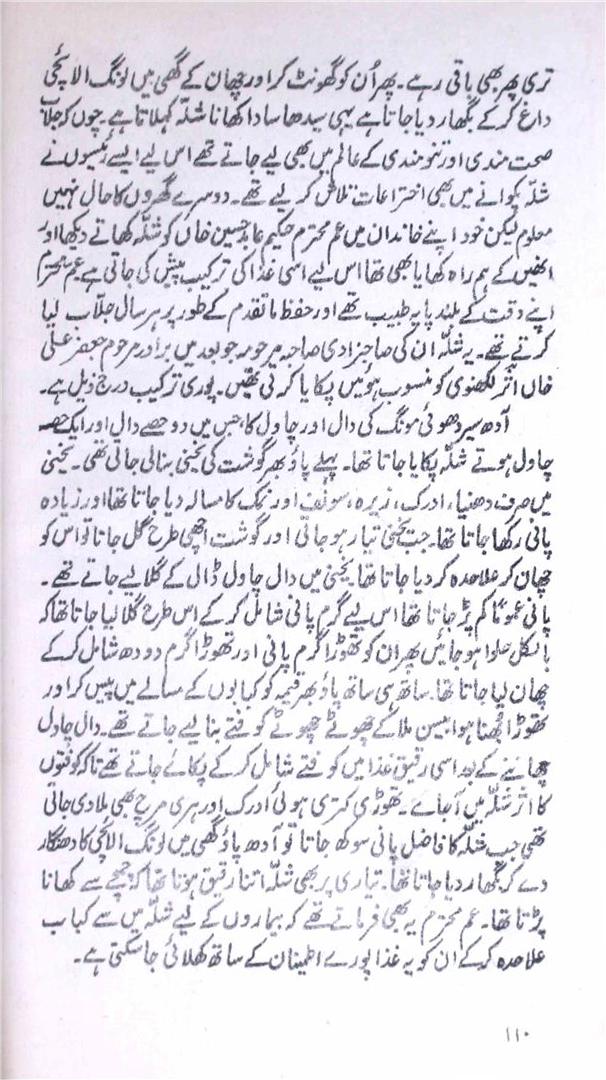 تری پھر بھی باقی رہے۔ پھر اُن کو گھونٹ کر اور چھان کے گھی میں لونگ الائچی
داغ کر کے بگھار دیا جاتا ہے یہی سیدھا سادا کھانا شلّہ کہلاتا ہے۔ چوں کہ جلاب
صحت مندی اور تنومندی کے عالم میں بھی لیے جاتے تھے اس لیے ایسے رئیسوں نے
شلّہ پکوانے میں بھی اختراعات تلاش کر لیے تھے۔ دوسرے گھروں کا حال نہیں
معلوم لیکن خود اپنے خاندان میں عم محترم حکیم عابد حسین خاں کو شلّہ کھاتے دیکھا اور
انھیں کے ہم راہ کھایا بھی تھا اس لیے اسی غذا کی ترکیب پیش کی جاتی ہے عم محترم
اپنے وقت کے بلند پایہ طبیب تھے اور حفظ ماتقدم کے طور پر ہر سال جلّاب لیا
کرتے تھے۔ یہ شلّہ ان کی صاحبزادی صاحبہ مرحومہ جو بعد میں برادر مرحوم جعفر علی
خاں اثر لکھنوی کو منسوب ہوئیں پکایا کرتی تھیں۔ پوری ترکیب درج ذیل ہے۔
آدھ سیر دھوئی مونگ کی دال اور چاول کا، جس میں دو حصے دال اور ایک حصہ
چاول ہوتے شلّہ پکایا جاتا تھا۔ پہلے پاؤ بھر گوشت کی یخنی بنا لی جاتی تھی۔ یخنی
میں صرف دھنیا، ادرک، زیرہ، سونف اور نمک کا مسالہ دیا جاتا تھا اور زیادہ
پانی رکھا جاتا تھا۔ جب یخنی تیار ہو جاتی اور گوشت اچھی طرح گل جاتا تو اس کو
چھان کر علاحدہ کر دیا جاتا تھا۔ یخنی میں دال چاول ڈال کے گلا لیے جاتے تھے۔
پانی عموماً کم پڑ جاتا تھا اس لیے گرم پانی شامل کر کے اس طرح گلا لیا جاتا تھا کہ
بالکل حلوا ہو جائیں پھر ان کو تھوڑا گرم پانی اور تھوڑا گرم دودھ شامل کر کے
چھان لیا جاتا تھا۔ ساتھ ہی ساتھ پاؤ بھر قیمہ کو کبابوں کے مسالے میں پیس کر اور
تھوڑا بُھنا ہوا بیسن ملا کے چھوٹے چھوٹے کوفتے بنا لیے جاتے تھے۔ دال چاول
چھاننے کے بعد اسی رقیق غذا میں کوفتے شامل کر کے پکائے جاتے تھے تاکہ کوفتوں
کا اثر شلّہ میں آجائے۔ تھوڑی کتری ہوئی ادرک اور ہری مرچ بھی ملا دی جاتی
تھی جب شلّہ کا فاضل پانی سوکھ جاتا تو آدھ پاؤ گھی میں لونگ الائچی کا دھنگار
دے کر بگھار دیا جاتا تھا۔ تیاری پر بھی شلّہ اتنا رقیق ہوتا تھا کہ چمچے سے کھانا
پڑتا تھا۔ عم محترم یہ بھی فرماتے تھے کہ بیماروں کے لیے شلّہ میں سے کباب
علاحدہ کر کے ان کو یہ غذا پورے اطمینان کے ساتھ کھلائی جا سکتی ہے۔
۱۱۰